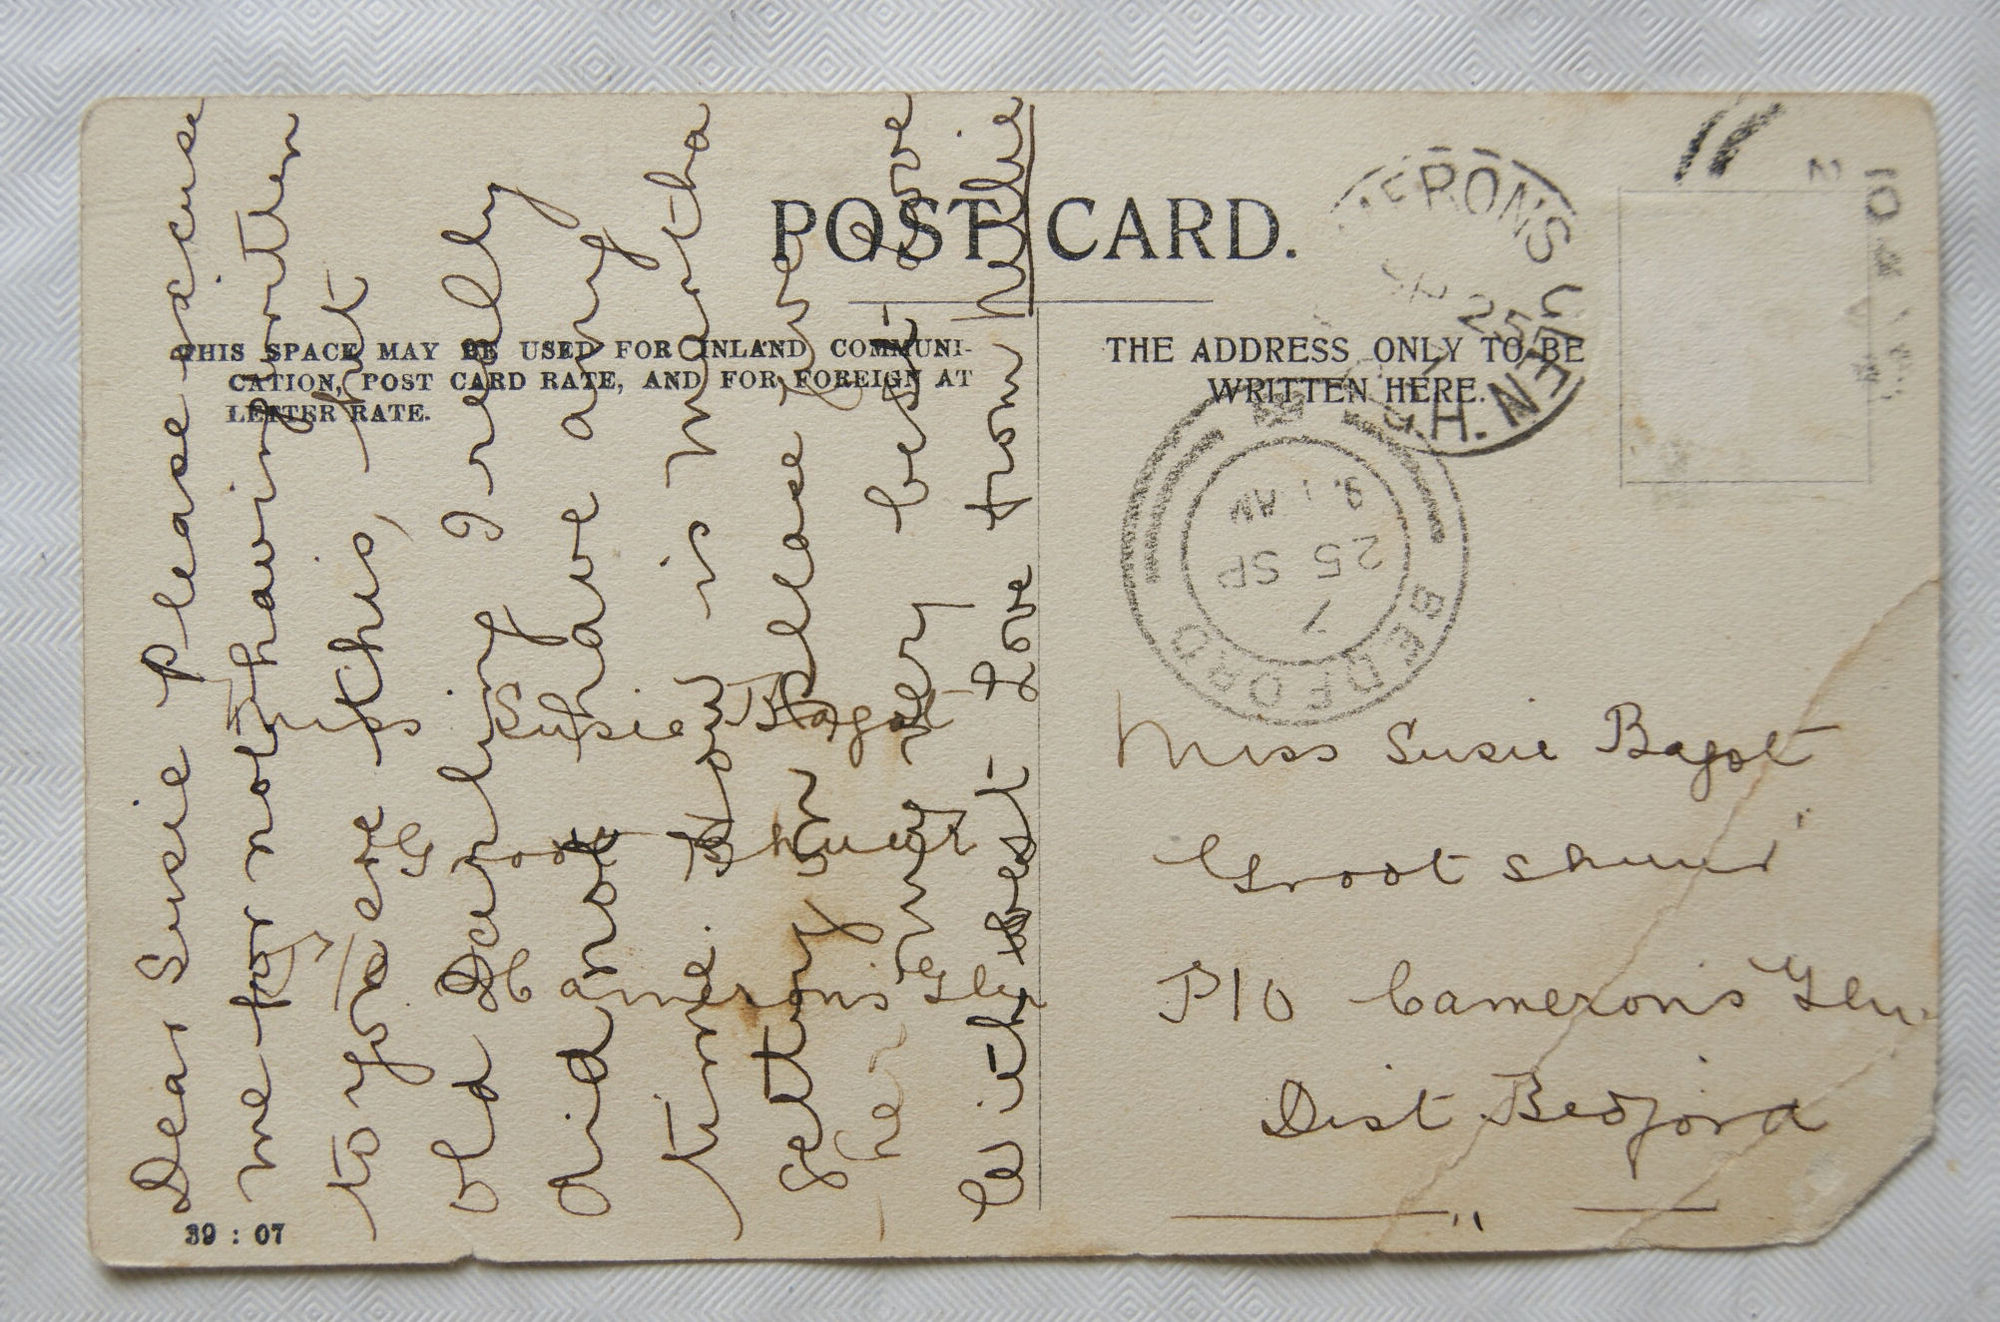 POST CARD.
THIS SPACE MAY BE USED FOR INLAND COMMUNI-
CATION, POST CARD RATE, AND FOR FOREIGN AT
LETTER RATE.
THE ADDRESS ONLY TO BE
WRITTEN HERE.
Dear Susie Please excuse
me for not having written
to you ere this, but
old Darling I really
did not have any
time. How is Martha
Settry Please give
her my very best love
With best Love from Nellie
Miss Susie Bagot
Groot Shuur
Camerons Glen
Miss Susie Bagot
Groot Shuur
P/O Camerons Glen
Dist Bedford
ERONS GLEN
SP 25
BEDFORD
7
25 SP
9.1 AM
39 : 07